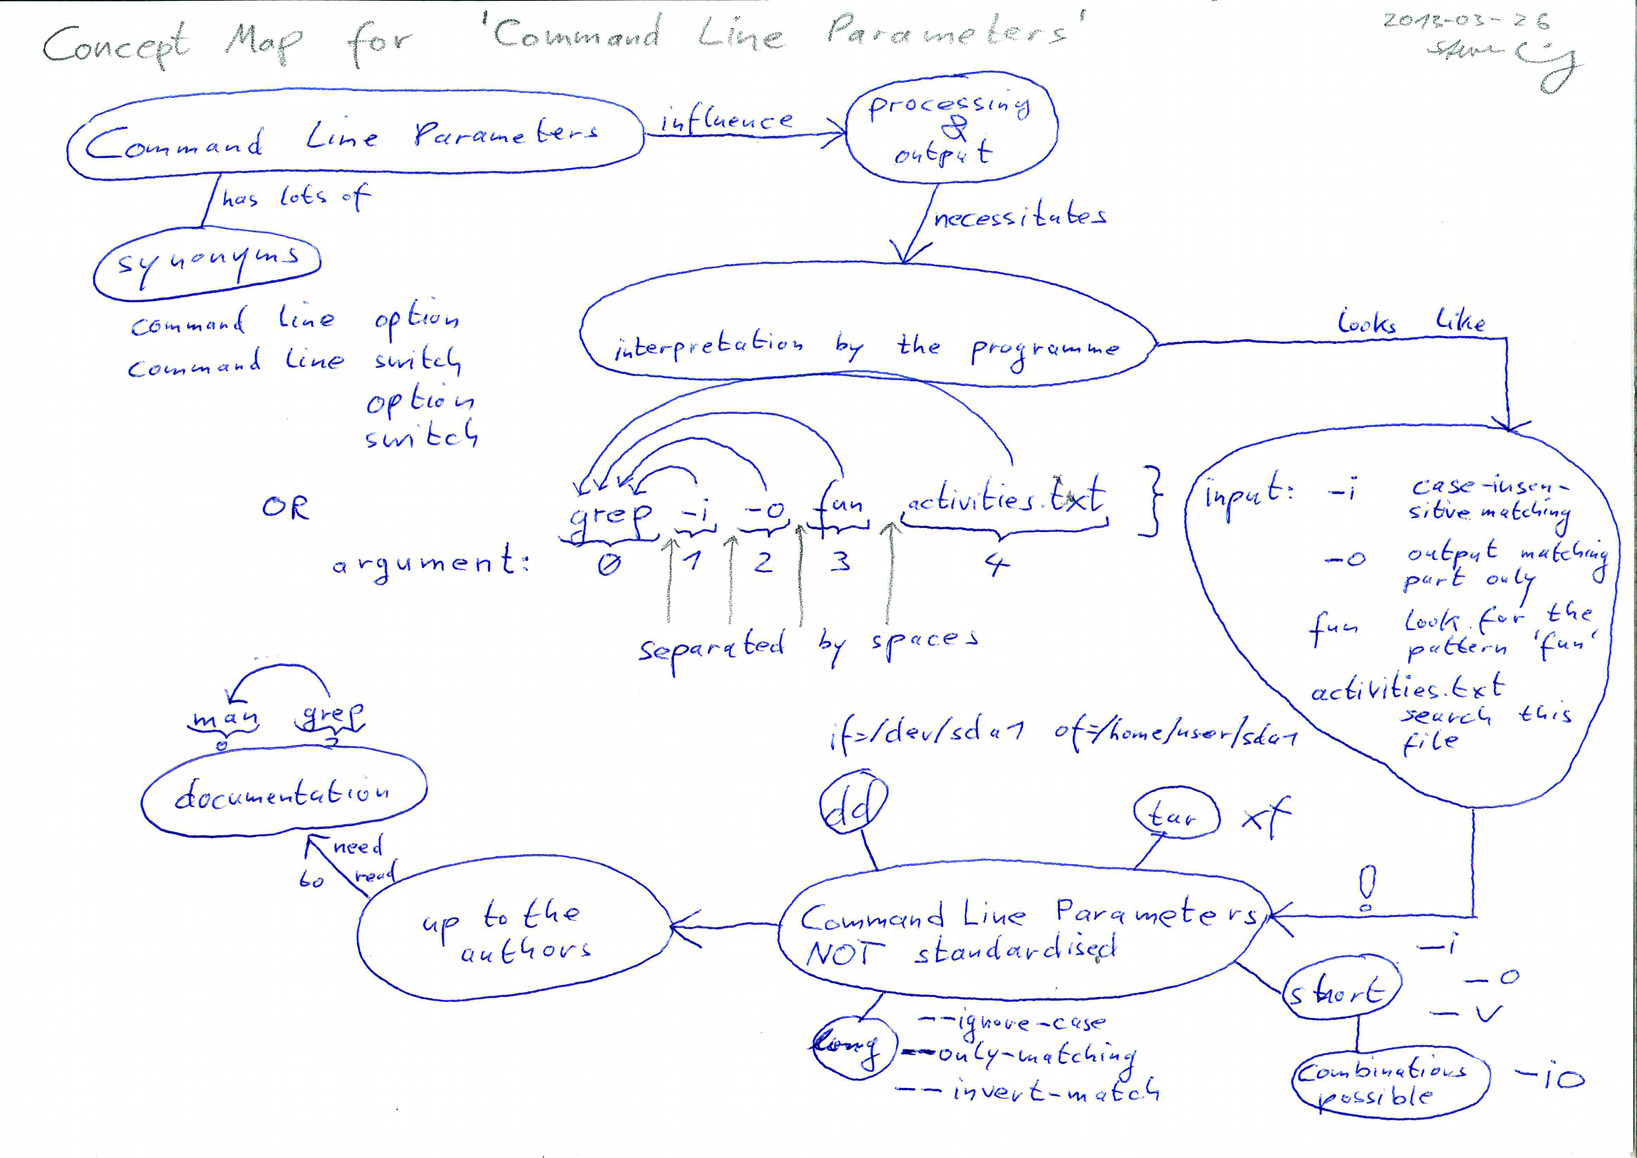 Concept Map for 'Command Line Parameters'
2013-03-26
Command Line Parameters
influence
processing
&
output
has lots of
synonyms
necessitates
command line option
command line switch
option
switch
interpretation by the programme
looks like
OR
grep -i -o fun activities.txt }
argument: 0 1 2 3 4
separated by spaces
input: -i case-insen-
sitive matching
-o output matching
part only
fun look for the
pattern 'fun'
activities.txt
search this
file
man grep
0
documentation
need
to read
up to the
authors
if=/dev/sda1 of=/home/user/sda1
dd
tar xf
!
Command Line Parameters
NOT standardised
-i
short -o
-v
long --ignore-case
--only-matching
--invert-match
Combinations
possible
-io